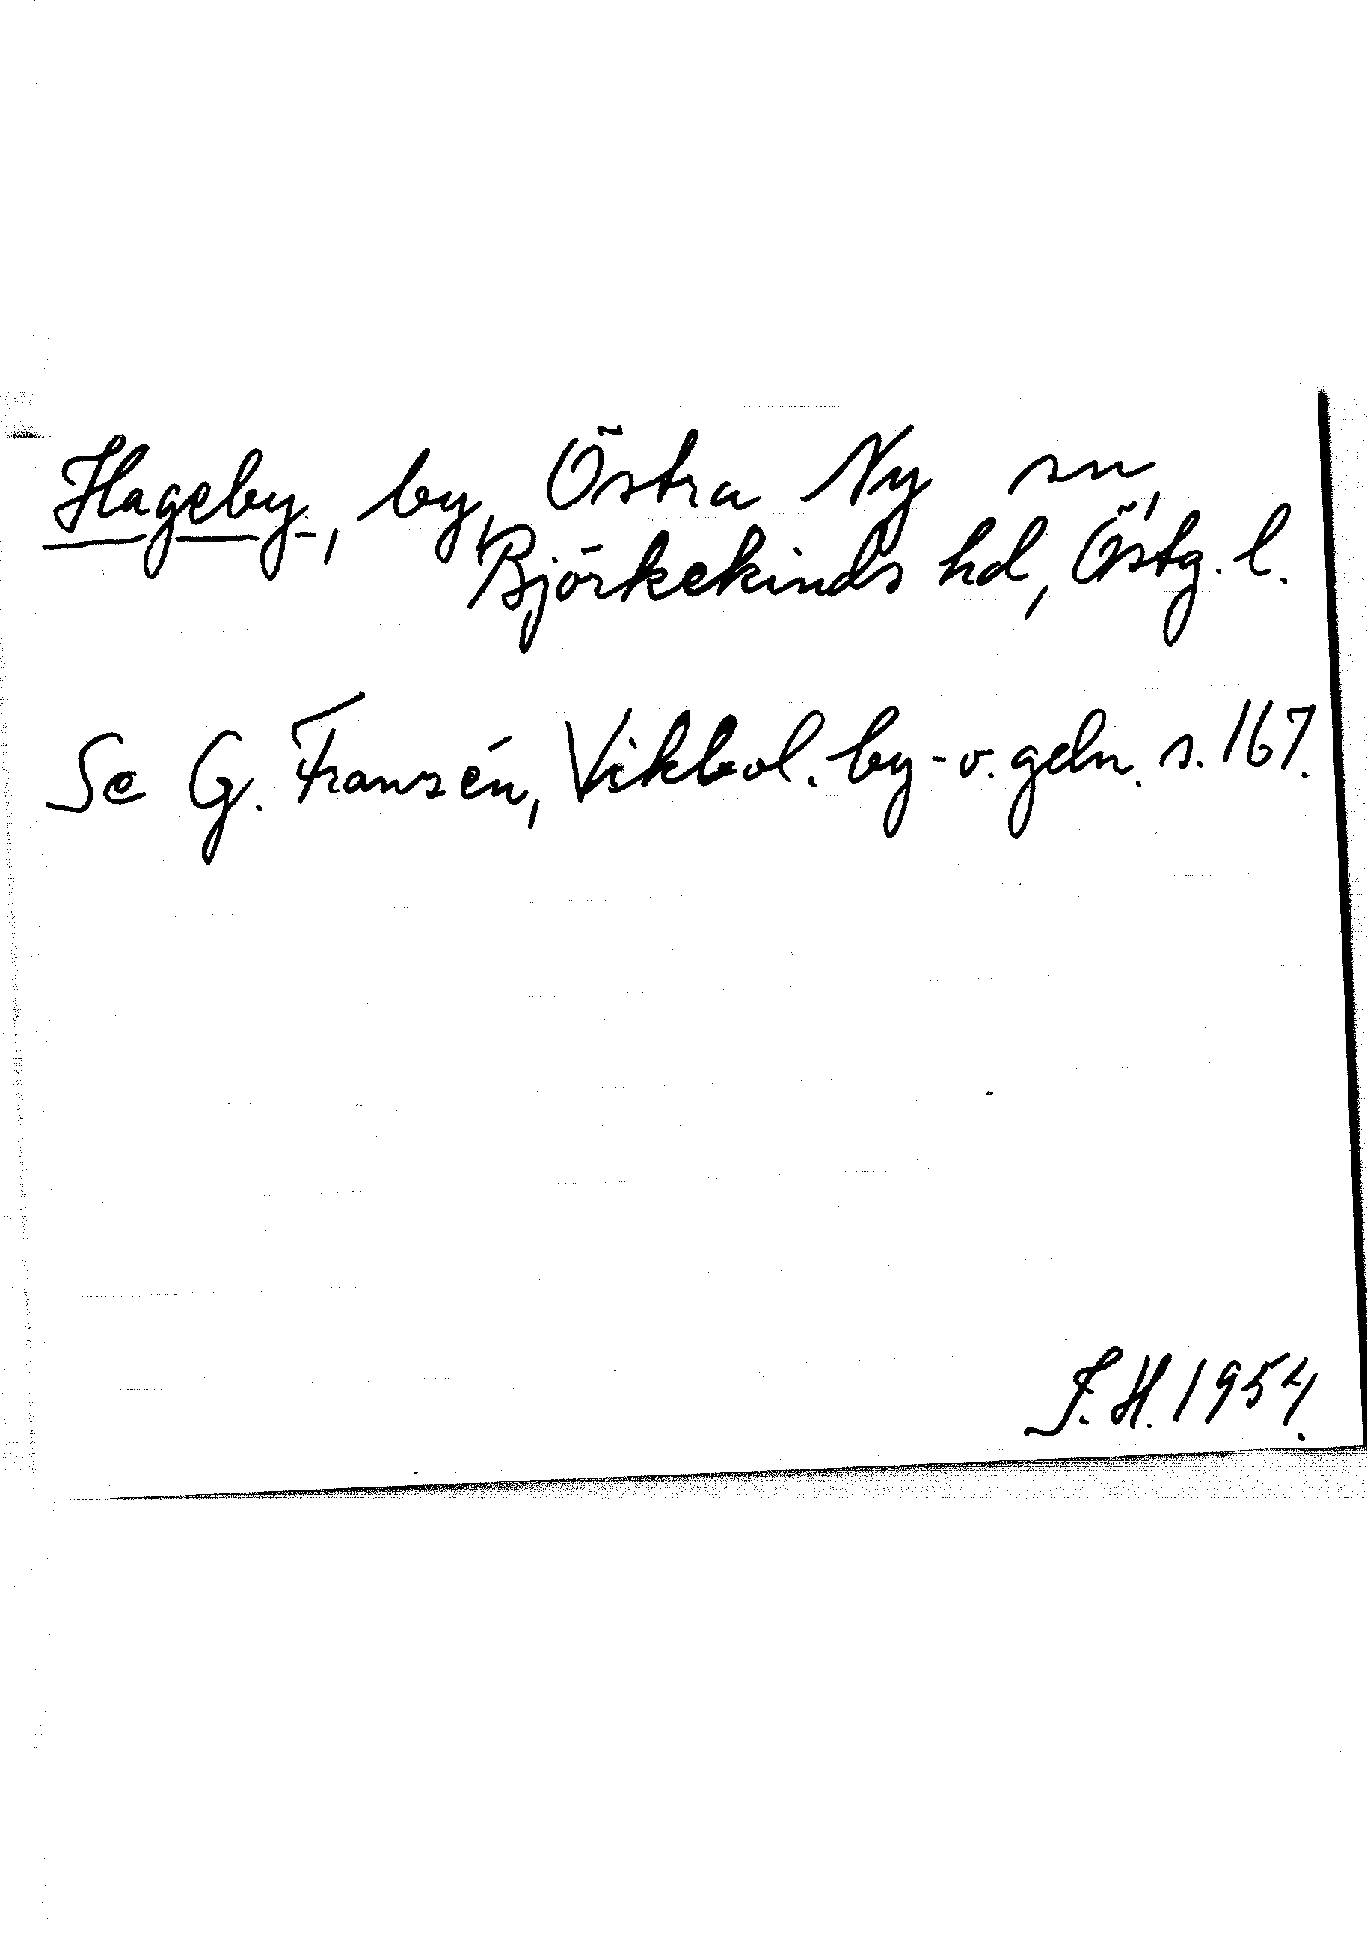 Hageby, by, Östra Ny sn,
Björkekinds hd, Östg. l.
Se G. Franzén, Vikbol. by- o. gdn. s. 167.
F. H. 1954.